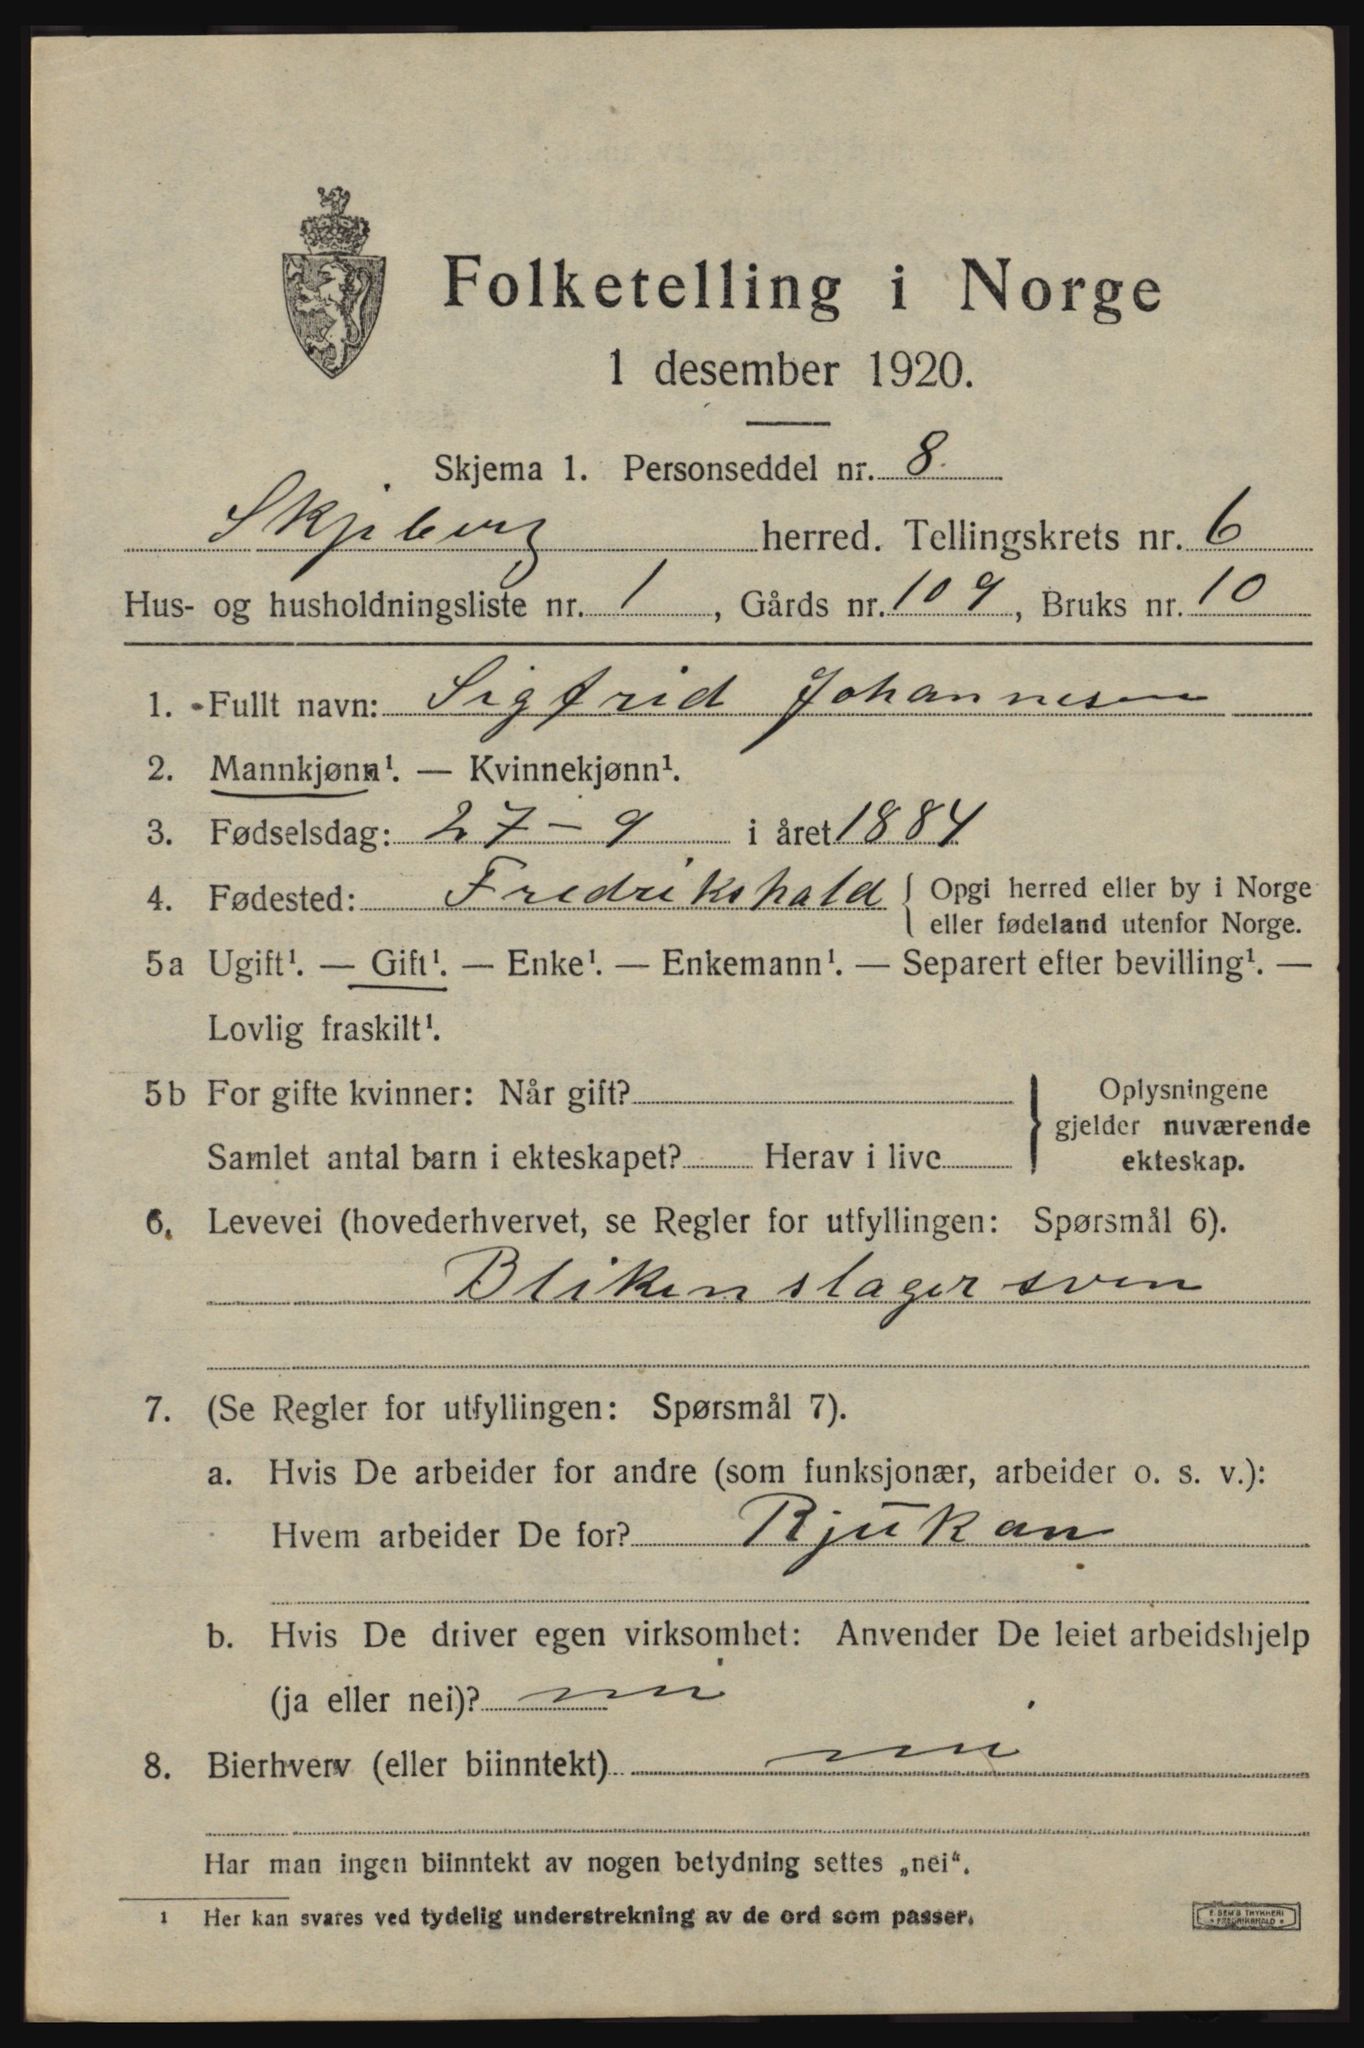 Folketelling i Norge
1 desember 1920.
Skjema 1. Personseddel nr. 8.
Skjeberg herred. Tellingskrets nr. 6
Hus- og husholdningsliste nr. 1, Gårds nr. 109, Bruks nr. 10
1. Fullt navn: Sigfrid Johannesen
2. Mannkjønn¹. — Kvinnekjønn¹.
3. Fødselsdag: 27 - 9 i året 1884
4. Fødested: Fredrikshald { Opgi herred eller by i Norge
eller fødeland utenfor Norge.
5a Ugift¹. — Gift¹. — Enke¹. — Enkemann¹. — Separert efter bevilling¹. —
Lovlig fraskilt¹.
5b For gifte kvinner: Når gift? } Oplysningene
gjelder nuværende
Samlet antal barn i ekteskapet? Herav i live ekteskap.
6. Levevei (hovederhvervet, se Regler for utfyllingen: Spørsmål 6).
Blikenslagersven
7. (Se Regler for utfyllingen: Spørsmål 7).
a. Hvis De arbeider for andre (som funksjonær, arbeider o. s. v.):
Hvem arbeider De for? Rjukan
b. Hvis De driver egen virksomhet: Anvender De leiet arbeidshjelp
(ja eller nei)? nei
8. Bierhverv (eller biinntekt) nei
Har man ingen biinntekt av nogen betydning settes „nei“.
1 Her kan svares ved tydelig understrekning av de ord som passer.
E. SEM'S TRYKKERI
FREDRIKSHALD